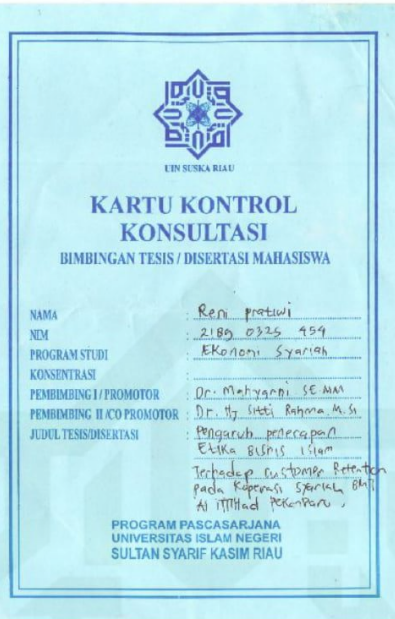 UIN SUSKA RIAU
KARTU KONTROL
KONSULTASI
BIMBINGAN TESIS / DISERTASI MAHASISWA
NAMA : Reni pratiwi
NIM : 2189 0325 454
PROGRAM STUDI : Ekonomi Syariah
KONSENTRASI :
PEMBIMBING I / PROMOTOR : Dr. Mahyarni SE.MM
PEMBIMBING II /CO PROMOTOR : Dr. Hj Sitti Rahma M.Si
JUDUL TESIS/DISERTASI : Pengaruh penerapan
Etika Bisnis Islam
Terhadap customer Retention
pada Koperasi Syariah BMT
Al ittihad Pekanbaru.
PROGRAM PASCASARJANA
UNIVERSITAS ISLAM NEGERI
SULTAN SYARIF KASIM RIAU